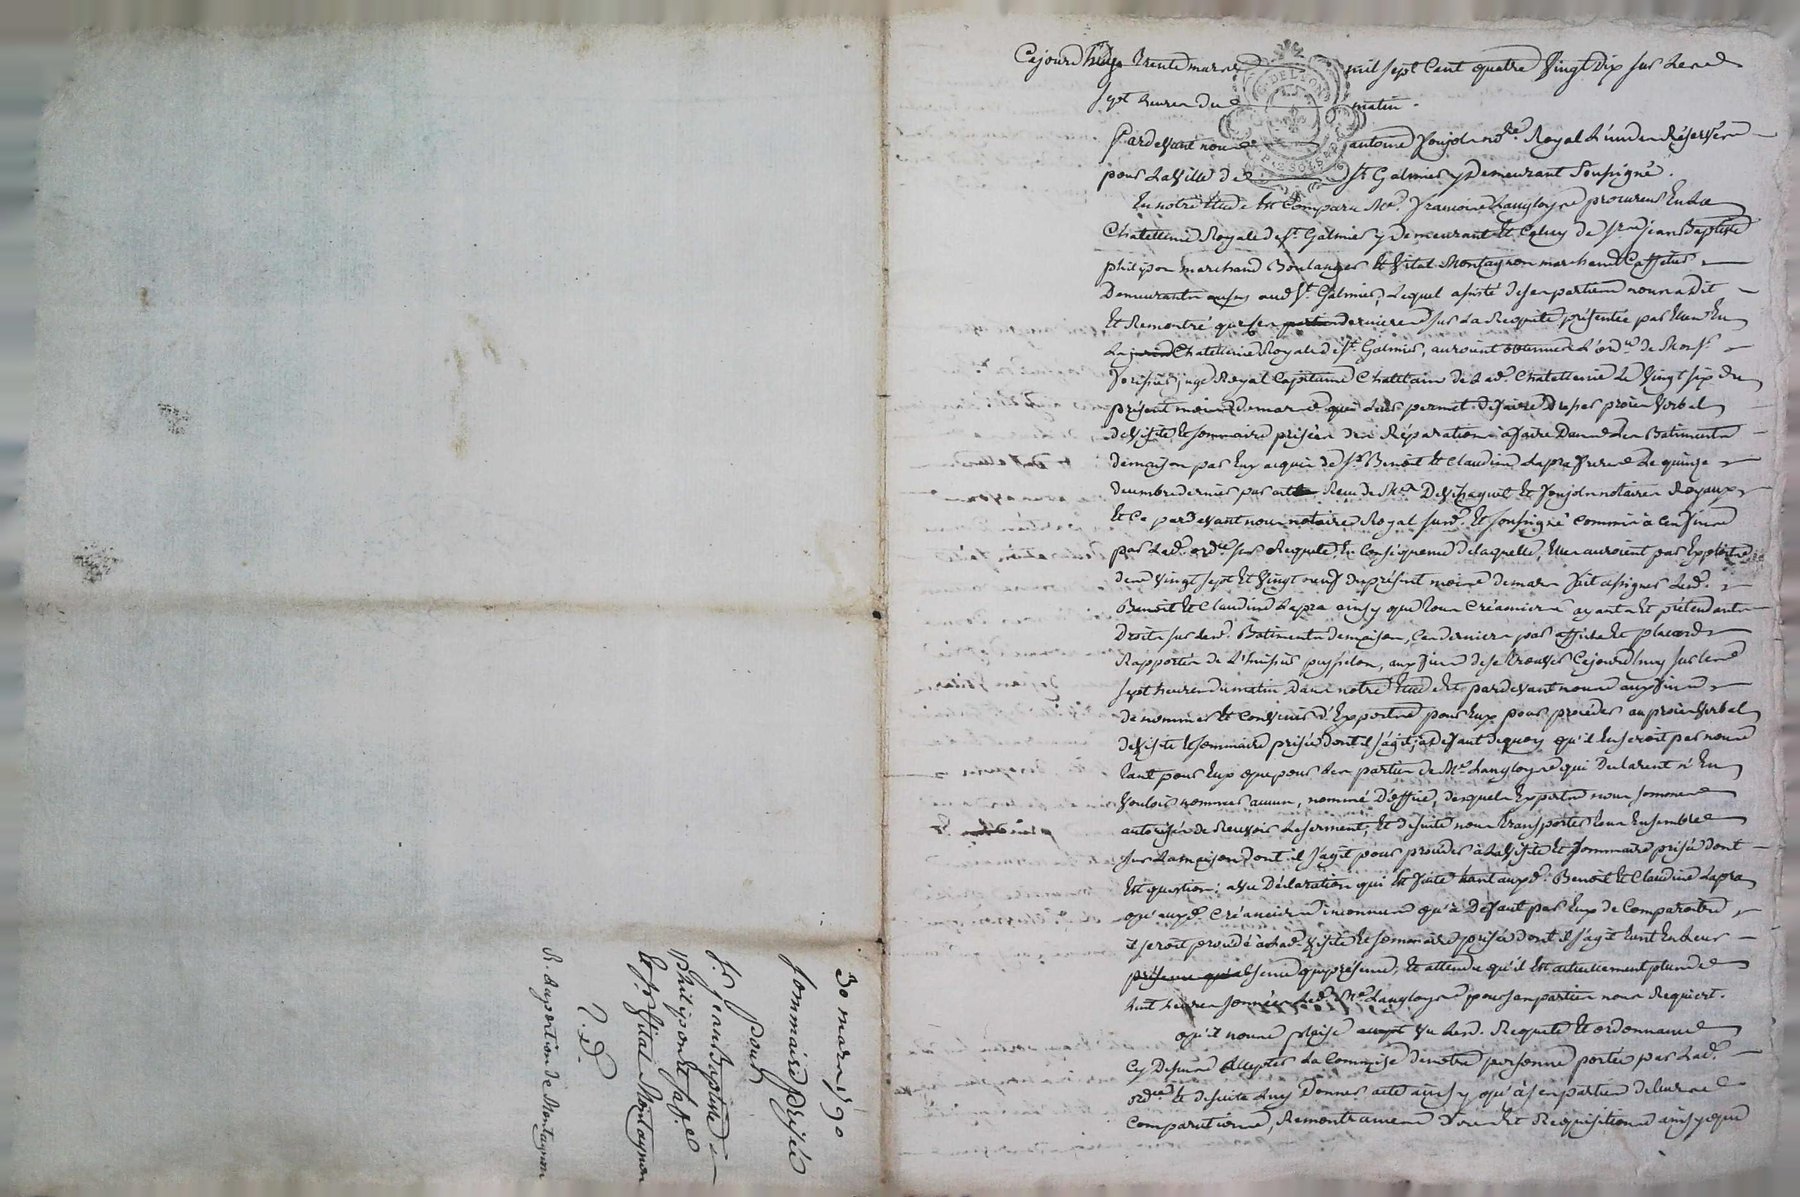 30 mars 1790
Sommaire prisée
pour
Sr. Jean Baptiste
philipon et sasse
et sr. Vital Montagnon
R. Raportion de Montagnon
Cejourd'huy trente mars mil sept Cent quatre Vingt Dix sur Les
sept heures du matin.
Pardevant nous antoine Poujol nore. Royal L'un des Réservés
pour La Ville de st Galmier y Demeurant soussigné.
En notre Etude Est Comparu Me. francois Langlogne procureur En La
Chatellenie Royale de st. Galmier y Demeurant Et Celuy de srs. jean Baptiste
philipon marchand Boulanger Et Vital Montagnon marchand Caffetier
Demeurants aud. st. Galmier, Lequel assisté de ses parties nous a Dit
Et Remontré que ses dernieres sur La Requete présentée par Elles En
La Chatellenie Royale de st. Galmier, auroient obtenue L'ordce. de Monsr.
juge Royal Capitaine Chatelain de Lade. Chatellenie Le Vingt six du
présent mois de mars qui Leur permet de faire Dresser procès Verbal
de Visite Et sommaire prisée des Réparations à faire Dans Les Batiments
de maison par Eux acquis de sr. Benoit Et Claudine Lapra freres Le quinze
decembre dernier par acte Recu de Mes. Devihaquet Et Poujol notaires Royaux
Et Ce pardevant nous notaire Royal susd. Et soussigné Commis à Ces fins
par Lad. ordce. sur Requete, En Conséquence de laquelle, Elles auroient par Exploits
des Vingt sept Et Vingt neuf du présent mois de mars fait assigner Lesd.
Benoit Et Claudine Lapra ainsy que tous Créanciers ayants Et prétendants
Droits sur Lesd. Batiments de maison, Ces derniers par affiche Et placards
Rapportés de L'huissier, aux fins de se trouver Cejourd'huy sur Les
sept heures du matin Dans notre Etude Et pardevant nous aux fins
de nommer Et Convenir d'Experts pour Eux pour procéder au procès Verbal
de Visite Et sommaire prisée dont il s'agit, à Defaut de quoy qu'il En seroit par nous
tant pour Eux que pour Les parties de Me. Langlogne qui Declarent n'En
Vouloir nommer aucun, nommé D'office, desquels Experts nous sommes
autorisés de Recevoir Le serment, Et de suite nous transporter tous Ensemble
sur La maison dont il s'agit pour procéder à La Visite Et sommaire prisée dont
Est question; avec Déclaration qui Est faite tant auxd. Benoit Et Claudine Lapra
qu'auxd. Créanciers inconnus qu'à Défaut par Eux de Comparoitre
il seroit procédé à Lad. Visite Et sommaire prisée dont il s'agit tant En Leur
absence que présence, Et attendu qu'il Est actuellement plus de
huit heures sonnées Led. Me. Langlogne pour ses parties nous Requiert.
qu'il nous plaise Vu Lesd. Requete Et ordonnance
Cy Dessus accepter La Commise de notre personne portée par Lad.
ordce. Et de suite Luy Donner acte ainsy qu'à ses parties de Leurs
Comparutions, Remontrances Dires Et Requisitions ainsy que